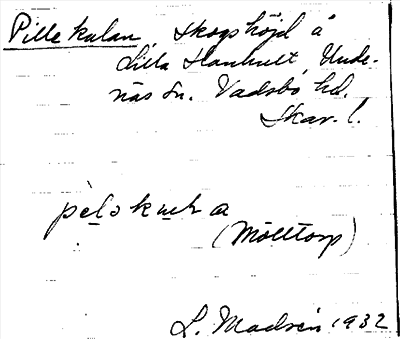 Pillekulan, skogshöjd å
Lilla Hanhult, Unde-
näs sn. Vadsbo hd.
Skar. l.
(Mölltorp)
L. Madsén 1932